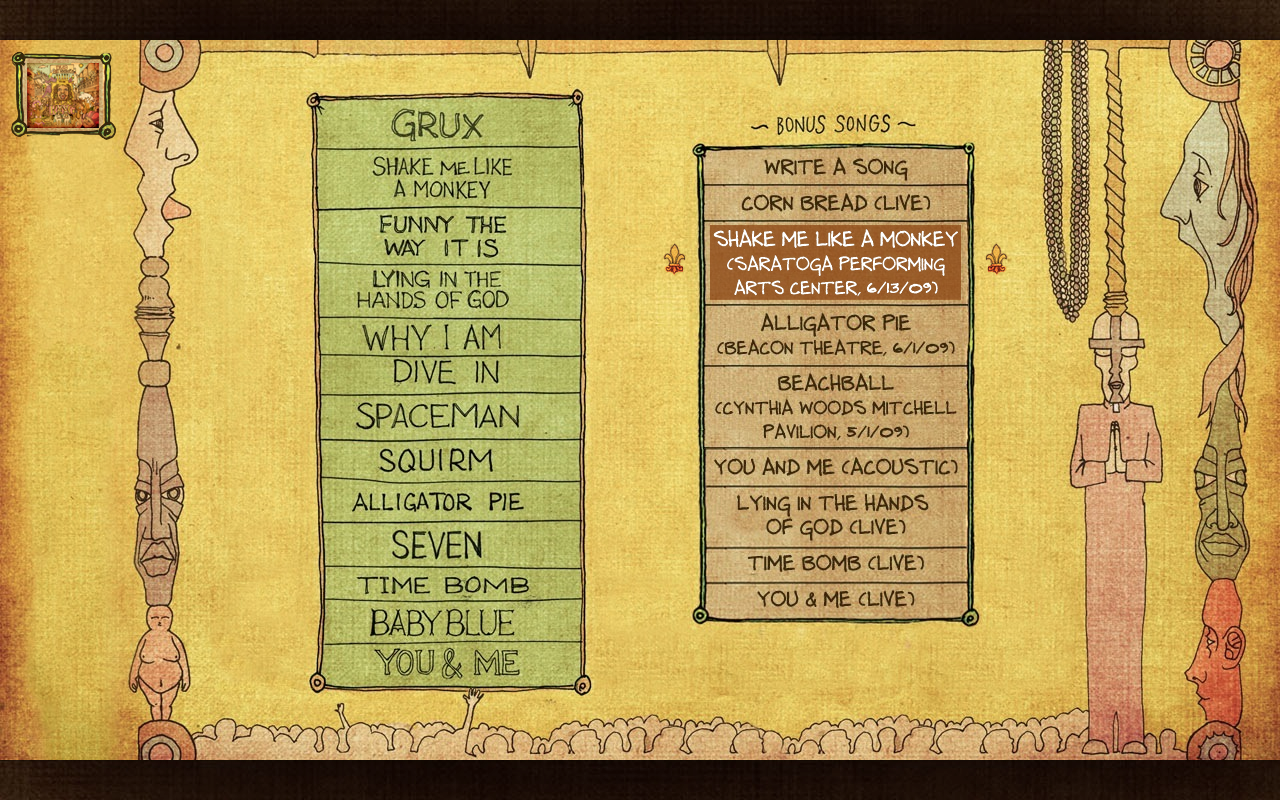 GRUX
SHAKE ME LIKE
A MONKEY
FUNNY THE
WAY IT IS
LYING IN THE
HANDS OF GOD
WHY I AM
DIVE IN
SPACEMAN
SQUIRM
ALLIGATOR PIE
SEVEN
TIME BOMB
BABY BLUE
YOU & ME
~ BONUS SONGS ~
WRITE A SONG
CORN BREAD (LIVE)
SHAKE ME LIKE A MONKEY
(SARATOGA PERFORMING
ARTS CENTER, 6/13/09)
ALLIGATOR PIE
(BEACON THEATRE, 6/1/09)
BEACHBALL
(CYNTHIA WOODS MITCHELL
PAVILION, 5/1/09)
YOU AND ME (ACOUSTIC)
LYING IN THE HANDS
OF GOD (LIVE)
TIME BOMB (LIVE)
YOU & ME (LIVE)